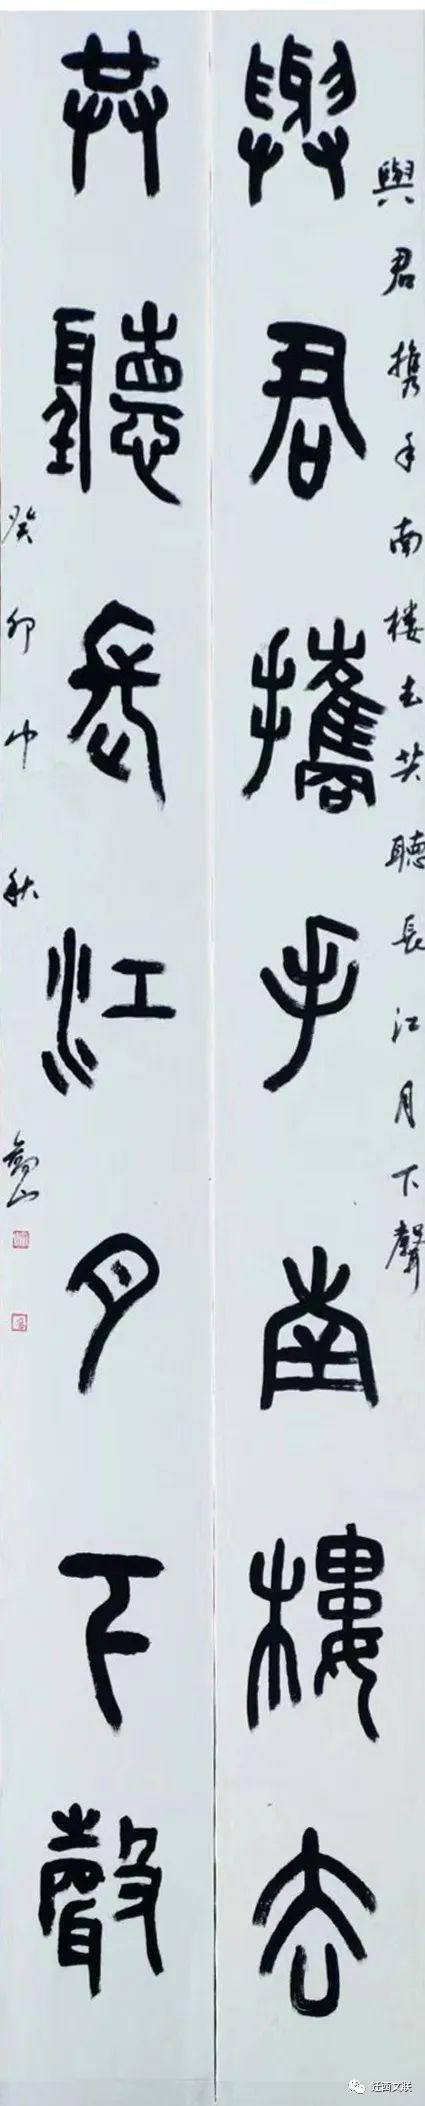 與君携手南楼去共聽長江月下聲
與君攜手南樓去
共聽長江月下聲
癸卯中秋
迁西文联